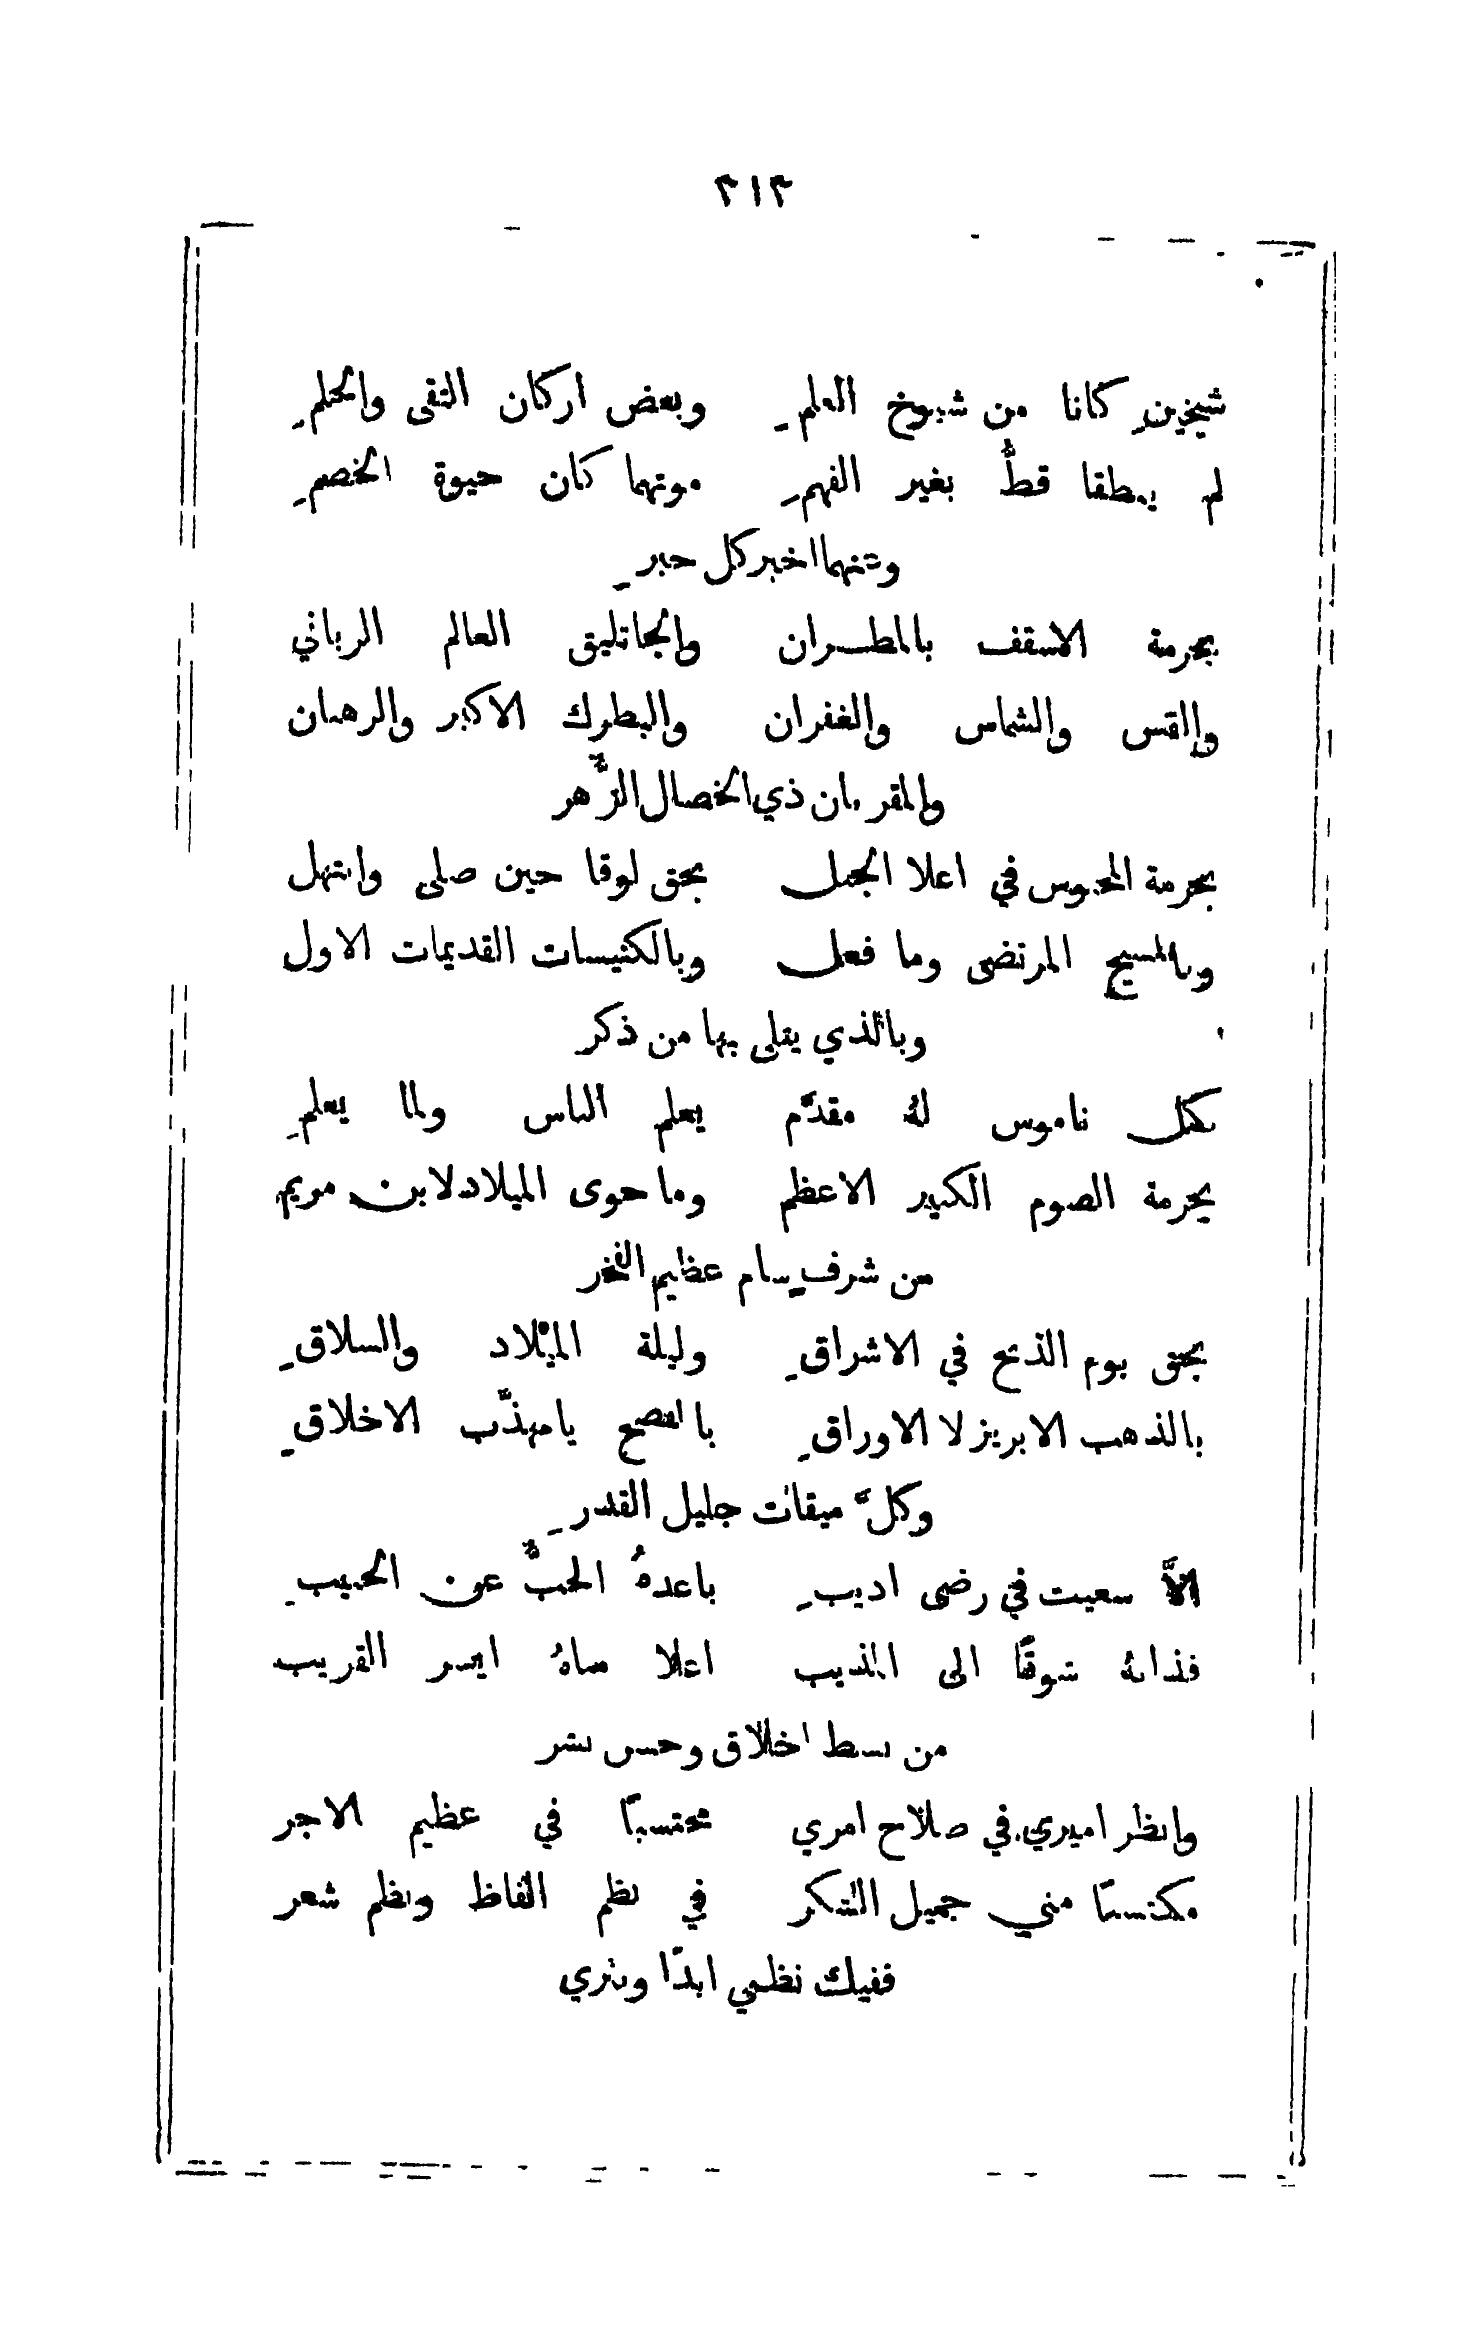 ٣١٣
شيخينِ كانا من شيوخ العلمِ وبعض اركان التقى والحلمِ
لم ينطقا قطُّ بغير الفهمِ موتهما كان حيوة الخصمِ
وعنهما اخبر كل حبرِ
بحرمة الاسقف بالمطران والجاثليق العالم الرباني
والقس والشماس والغفران والبطرك الاكبر والرهبان
والمقربان ذي الخصال الزُّهر
بحرمة المحبوس في اعلا الجبل بحق لوقا حين صلى وابتهل
وبالمسيح المرتضى وما فعل وبالكنيسات القديمات الاول
وبالذي يتلى بها من ذكر
بكل ناموس لهُ مقدَّم يعلم الناس ولما يعلمِ
بحرمة الصوم الكبير الاعظم وما حوى الميلاد لابن مريم
من شرفٍ سام عظيم الفخر
بحق يوم الذبح في الاشراقِ وليلة الميلاد والسلاقِ
بالذهب الابريز لا الاوراقِ بالفصح يا مهذَّب الاخلاقِ
وكلّ ميقات جليل القدرِ
الَّا سعيت في رضى اديبِ باعدهُ الحبُّ عن الحبيبِ
شوقًا الى اعلا ايسر القريب
من بسط اخلاق وحسن بشر
وانظر اميري في صلاح امري محتسبًا في عظيم الاجر
مكتسبًا مني جميل الشكر في نظم الفاظ ونظم شعر
ففيك نظمي ابدًا ونثري